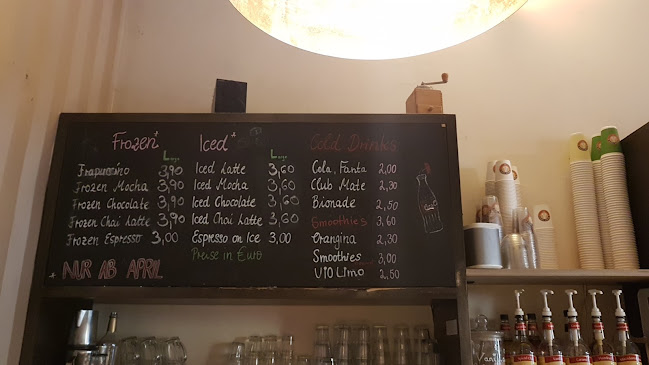 Frozen*
Large
Frapuccino 3,90
Frozen Mocha 3,90
Frozen Chocolate 3,90
Frozen Chai Latte 3,90
Frozen Espresso 3,00
* NUR AB APRIL
Iced*
Large
Iced Latte 3,60
Iced Mocha 3,60
Iced Chocolate 3,60
Iced Chai Latte 3,60
Espresso on Ice 3,00
Preise in Euro
Cold Drinks
Cola, Fanta 2,00
Club Mate 2,30
Bionade 2,50
Smoothies 3,60
Orangina 2,30
Smoothies 3,00
UTO Limo 2,50